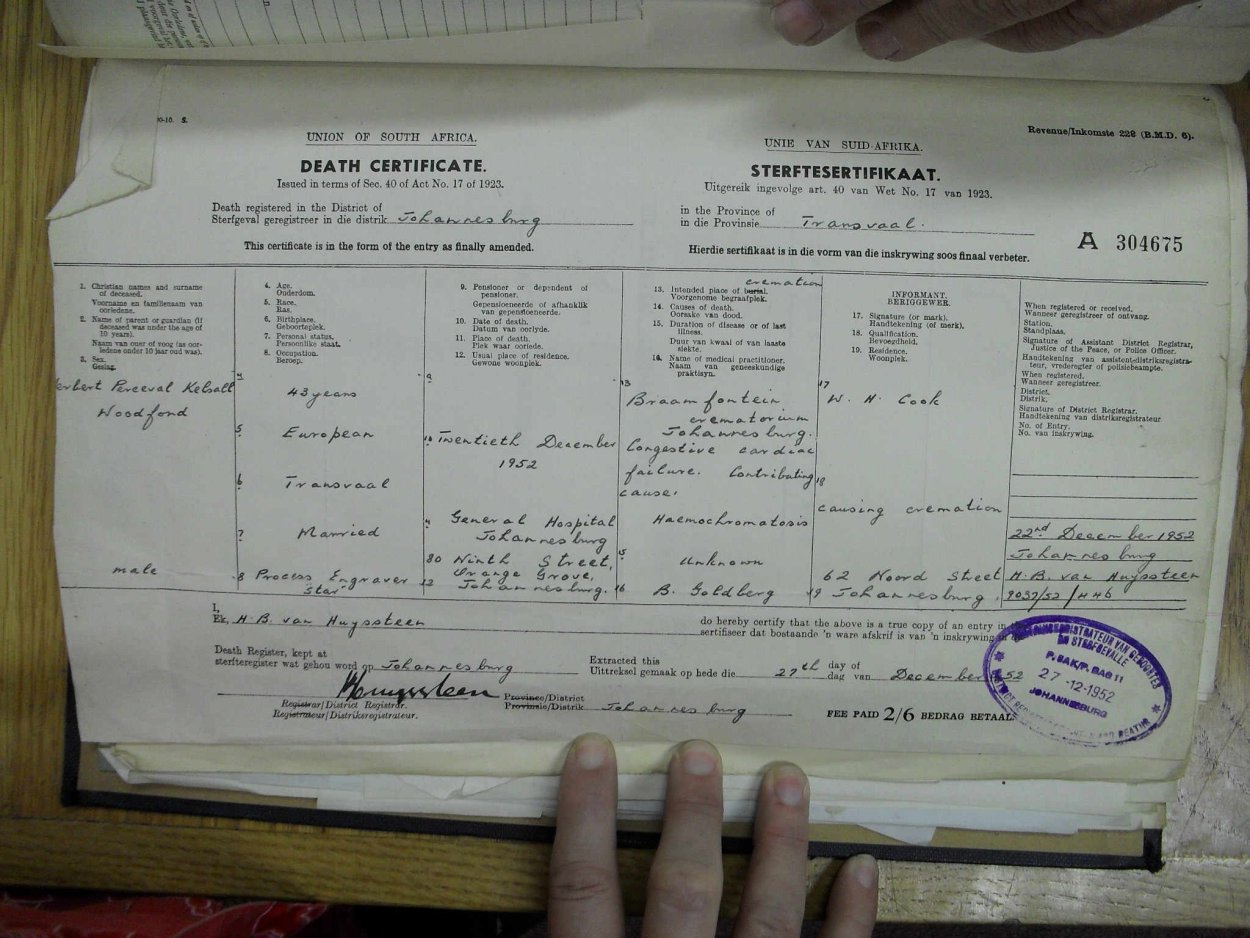 10-10. S.
Revenue/Inkomste 228 (B.M.D. 6).
UNION OF SOUTH AFRICA.
DEATH CERTIFICATE.
Issued in terms of Sec. 40 of Act No. 17 of 1923.
UNIE VAN SUID-AFRIKA.
STERFTESERTIFIKAAT.
Uitgereik ingevolge art. 40 van Wet No. 17 van 1923.
Death registered in the District of
Sterfgeval geregistreer in die distrik Johannesburg
in the Province of
in die Provinsie Transvaal.
This certificate is in the form of the entry as finally amended.
Hierdie sertifikaat is in die vorm van die inskrywing soos finaal verbeter.
A 304675
1. Christian names and surname
of deceased.
Voorname en familienaam van
oorledene.
2. Name of parent or guardian (if
deceased was under the age of
10 years).
Naam van ouer of voog (as oor-
ledene onder 10 jaar oud was).
3. Sex.
Geslag.
erbert Perceval Kelsall
Woodfond
male
4. Age.
Ouderdom.
5. Race.
Ras.
6. Birthplace.
Geboorteplek.
7. Personal status.
Persoonlike staat.
8. Occupation.
Beroep.
4 43 years
5 European
6 Transvaal
7 Married
8 Process Engraver
Star
9. Pensioner or dependent of
pensioner.
Gepensioeneerde of afhanklik
van gepensioeneerde.
10. Date of death.
Datum van oorlyde.
11. Place of death.
Plek waar oorlede.
12. Usual place of residence.
Gewone woonplek.
9
10 Twentieth December
1952
11 General Hospital
Johannesburg
80 Ninth Street,
Orange Grove,
12 Johannesburg.
cremation
13. Intended place of burial.
Voorgenome begraafplek.
14. Causes of death.
Oorsake van dood.
15. Duration of disease or of last
illness.
Duur van kwaal of van laaste
siekte.
16. Name of medical practitioner.
Naam van geneeskundige
praktisyn.
13
Braamfontein
crematorium
Johannesburg.
Congestive cardiac
failure. Contributing
cause.
Haemochromatosis
15 Unknown
16 B. Goldberg
INFORMANT.
BERIGGEWER.
17. Signature (or mark).
Handtekening (of merk).
18. Qualification.
Bevoegdheid.
19. Residence.
Woonplek.
17
W. H. Cook
18
causing cremation
62 Noord Street
19 Johannesburg.
When registered or received,
Wanneer geregistreer of ontvang.
Station.
Standplaas.
Signature of Assistant District Registrar,
Justice of the Peace, or Police Officer.
Handtekening van assistentdistriksregistra-
teur, vrederegter of polisiebeampte.
When registered.
Wanneer geregistreer.
District.
Distrik.
Signature of District Registrar.
Handtekening van distriksregistrateur
No. of Entry.
No. van inskrywing.
22nd December 1952
Johannesburg
H. B. van Huyssteen
9037/52/HH6
I,
Ek, H. B. van Huyssteen
do hereby certify that the above is a true copy of an entry in
sertifiseer dat bostaande 'n ware afskrif is van 'n inskrywing in
Death Register, kept at
sterfteregister wat gehou word op Johannesburg
Extracted this
Uittreksel gemaak op hede die 27th day of
dag van December 52
Registrar/District Registrar.
Registrateur/Distriksregistrateur.
Province/District
Provinsie/Distrik Johannesburg
FEE PAID 2/6 BEDRAG BETAAL
REGISTRATEUR VAN GEBOORTES
EN STERFGEVALLE
P. SAK/P. BAG 11
27-12-1952
JOHANNESBURG